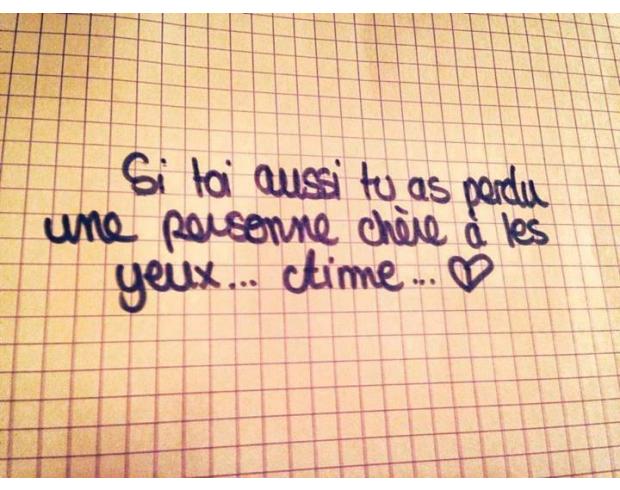 Si toi aussi tu as perdu
une personne chère à tes
yeux... aime... ♡